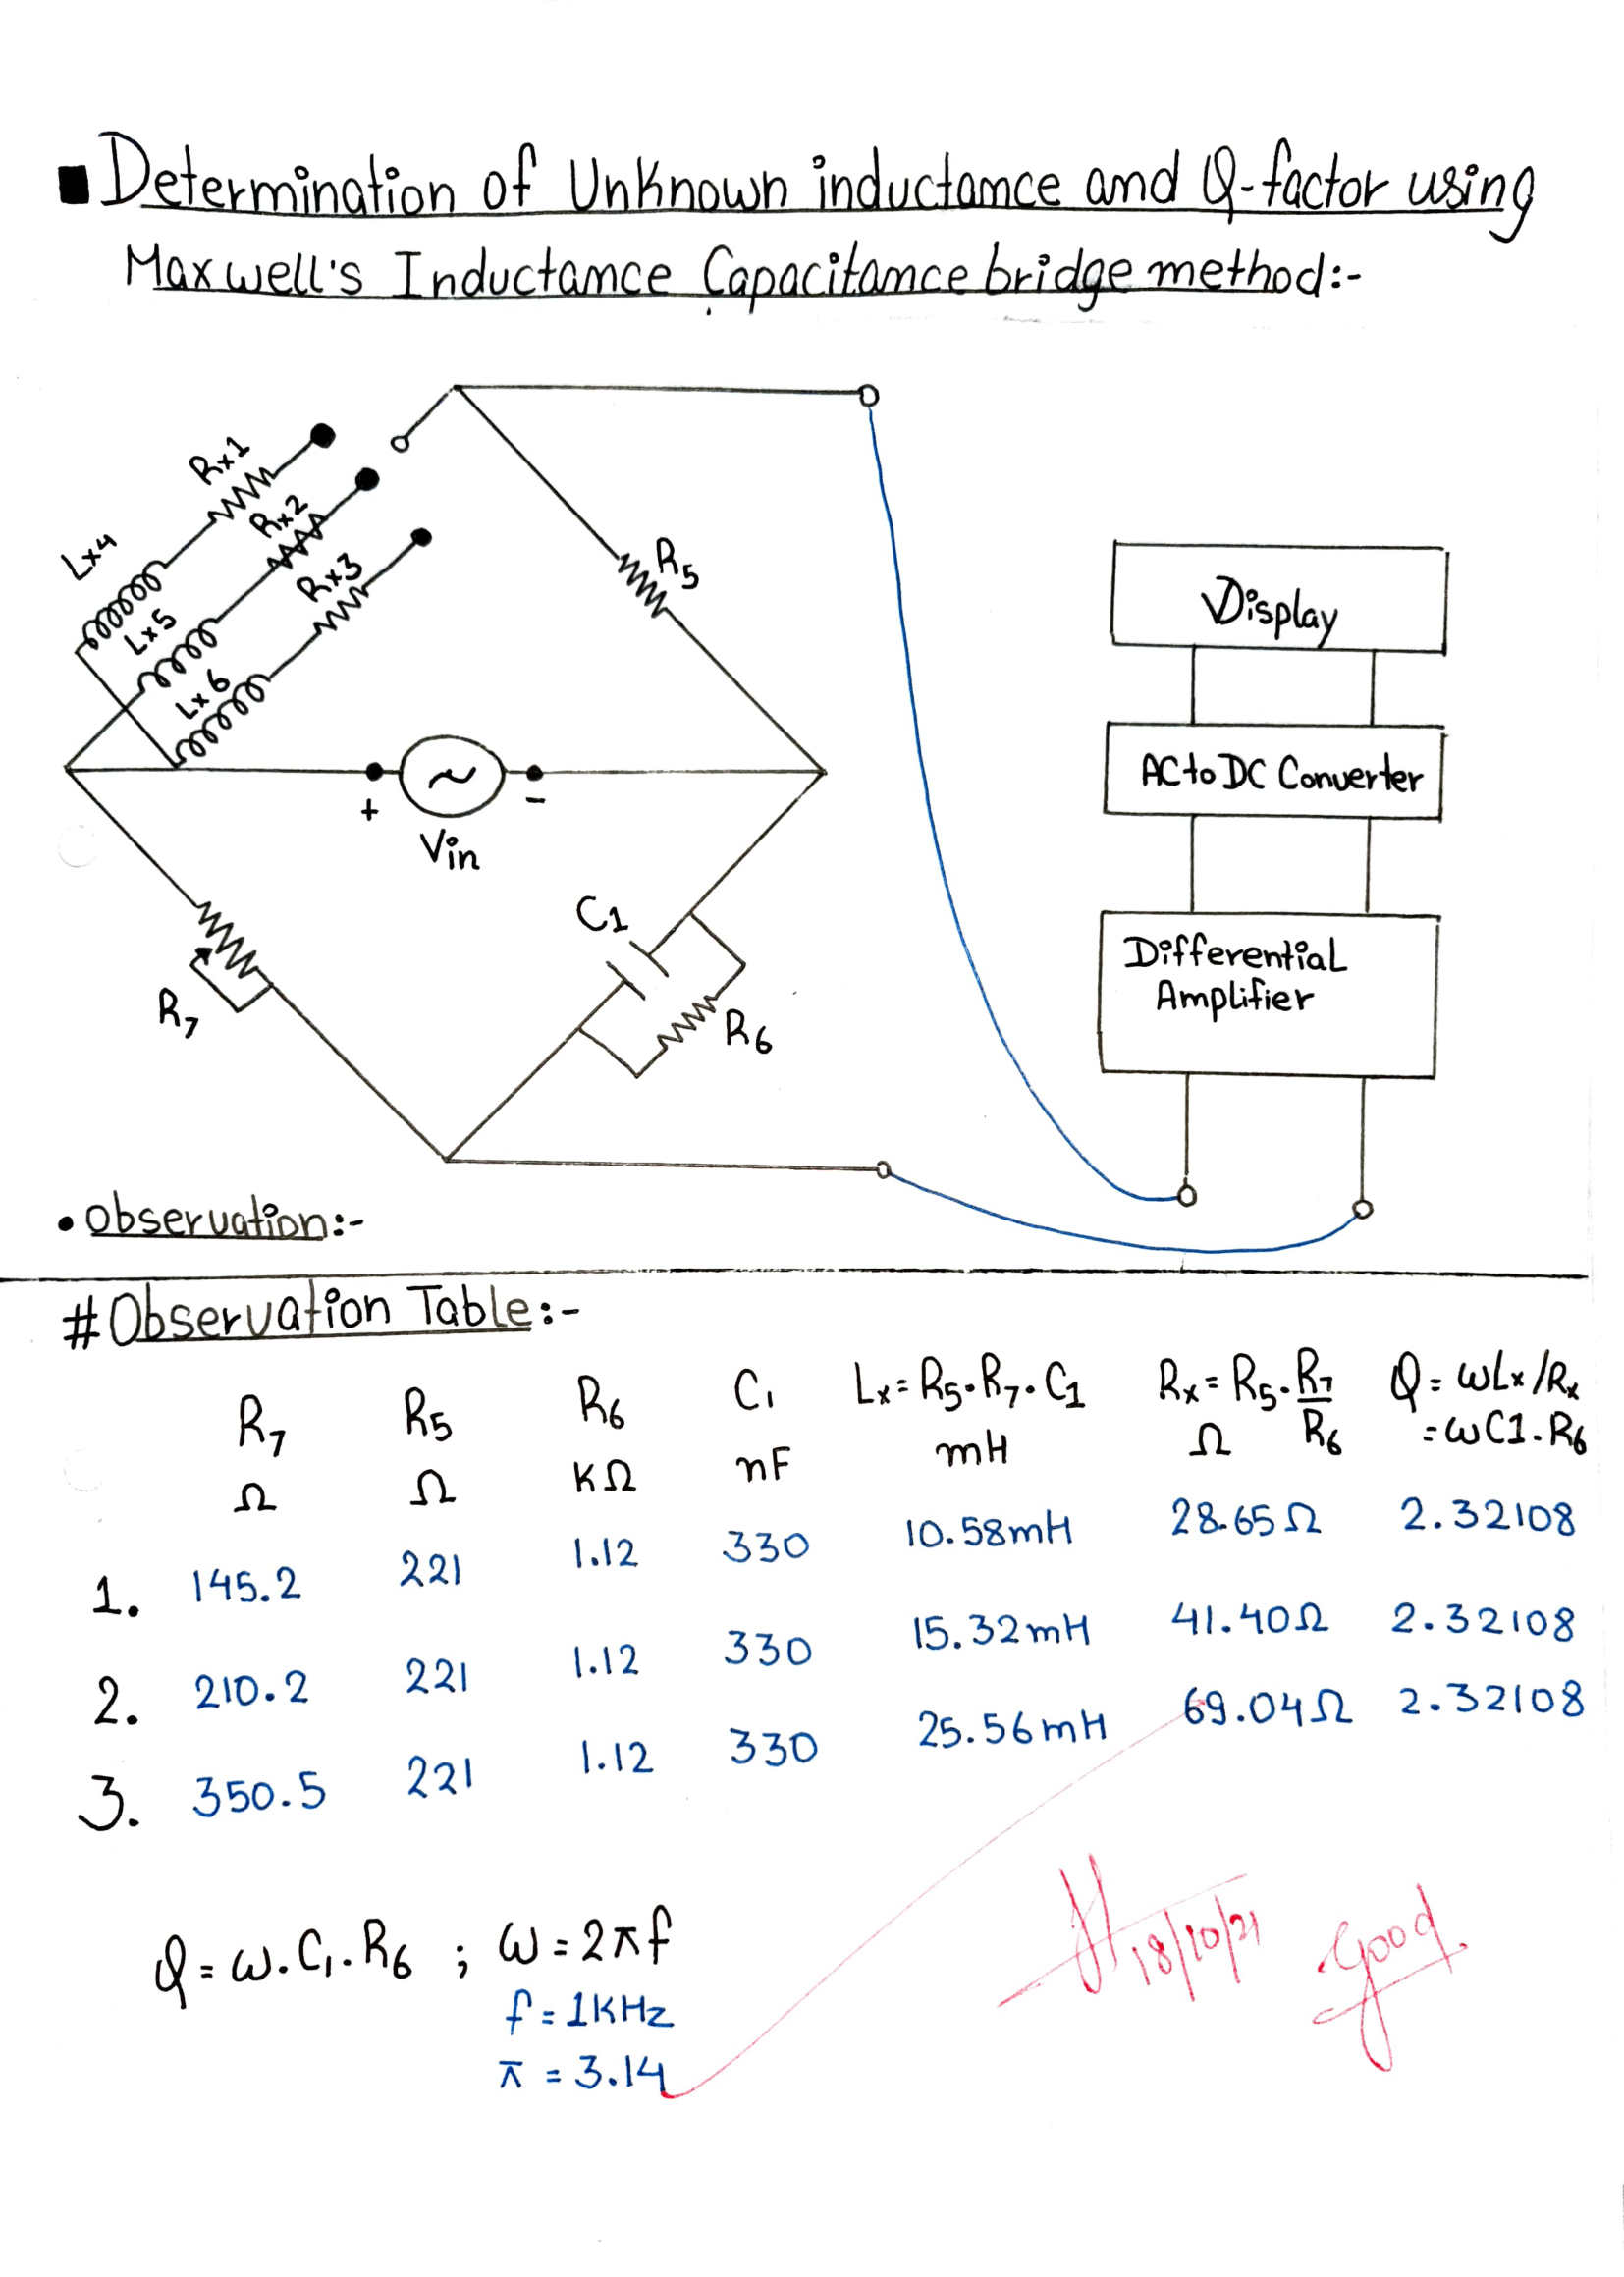 Determination of Unknown inductance and Q-factor using
Maxwell's Inductance Capacitance bridge method:-
Rx1
Rx2
Rx3
Lx4
Lx5
Lx6
R5
+
-
Vin
C1
R6
R7
Display
AC to DC Converter
Differential
Amplifier
• Observation:-
# Observation Table:-
R7 R5 R6 C1 Lx = R5.R7.C1 Rx = R5.R7/R6 Q = ωLx/Rx
Ω Ω KΩ nF mH Ω = ωC1.R6
1. 145.2 221 1.12 330 10.58mH 28.65Ω 2.32108
2. 210.2 221 1.12 330 15.32mH 41.40Ω 2.32108
3. 350.5 221 1.12 330 25.56mH 69.04Ω 2.32108
Q = ω.C1.R6 ; ω = 2πf
f = 1KHz
π = 3.14
18/10/21
Good